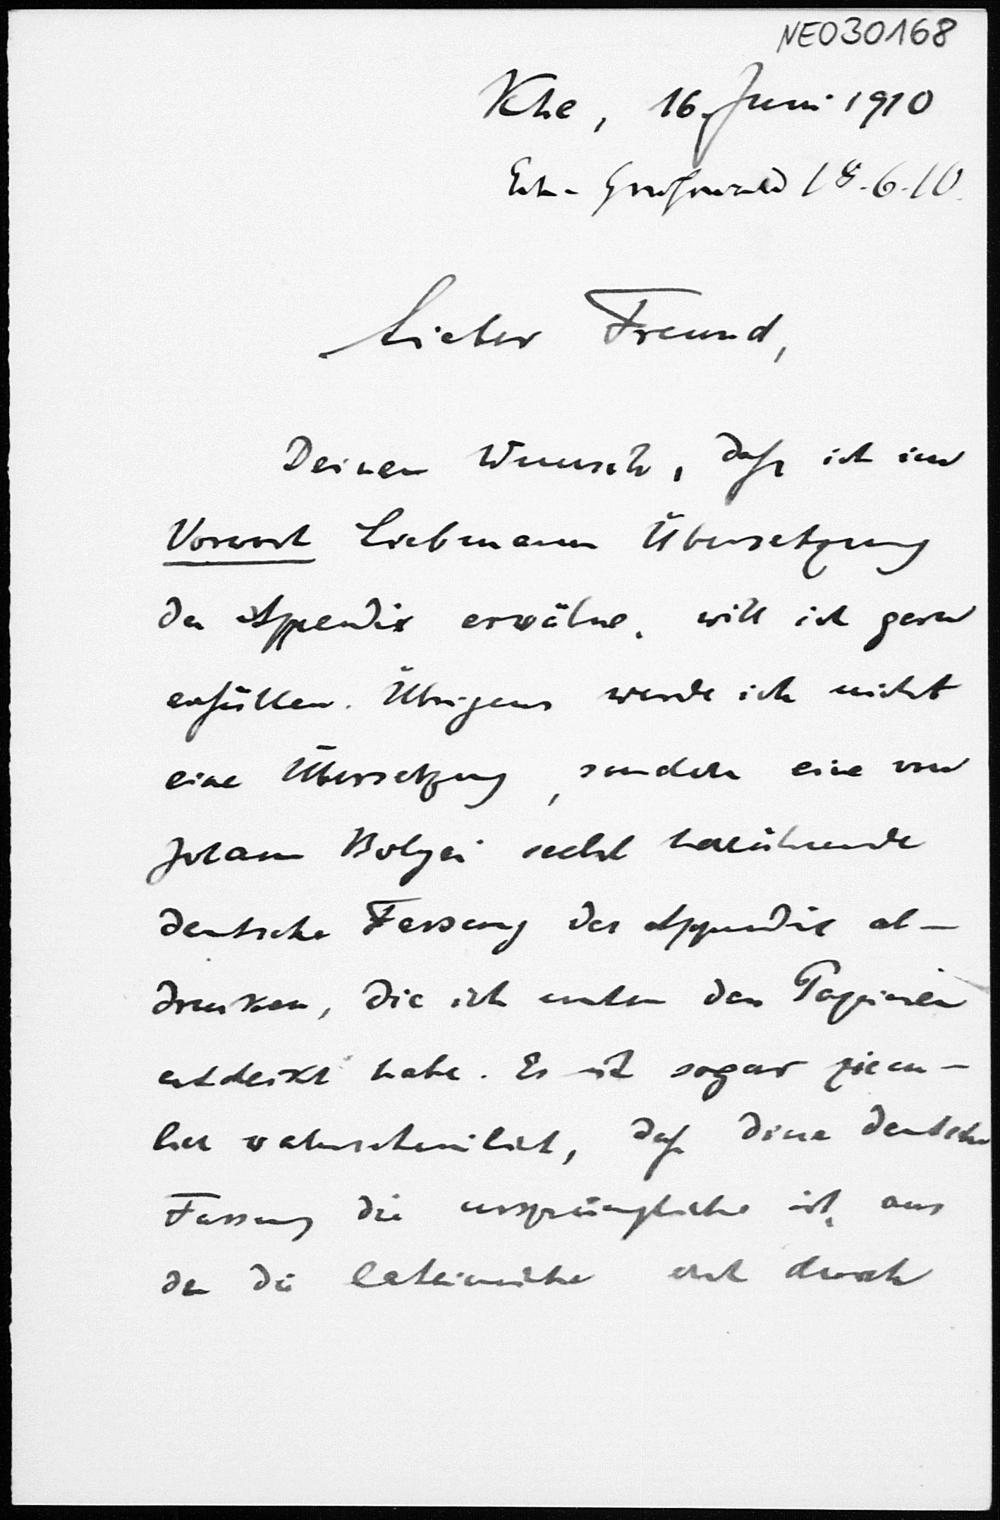 NE030168
Khe, 16. Juni 1910
Erh. Greifswald 18.6.10.
Lieber Freund,
Deinen Wunsch, daß ich im
Vorwort Liebmanns Übersetzung
der Appendix erwähne, will ich gern
erfüllen. Übrigens werde ich nicht
eine Übersetzung, sondern eine von
Johann Bolyai selbst herrührende
deutsche Fassung des Appendix ab-
drucken, die ich unter den Papieren
entdeckt habe. Es ist sogar ziem-
lich wahrscheinlich, daß diese deutsche
Fassung die ursprüngliche ist, aus
der die lateinische erst durch